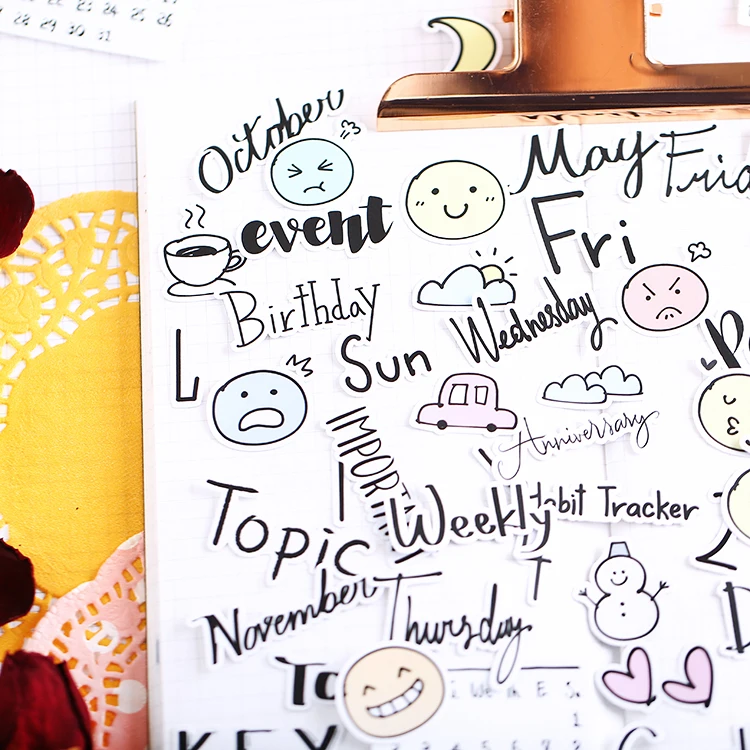 24 25 26
28 29 30 31
October
May
Frid
event
Fri
Birthday
Wednesday
Sun
L
Anniversary
IMPORTA
Weekly
bit Tracker
Topic
November
Thursday
To
KEY